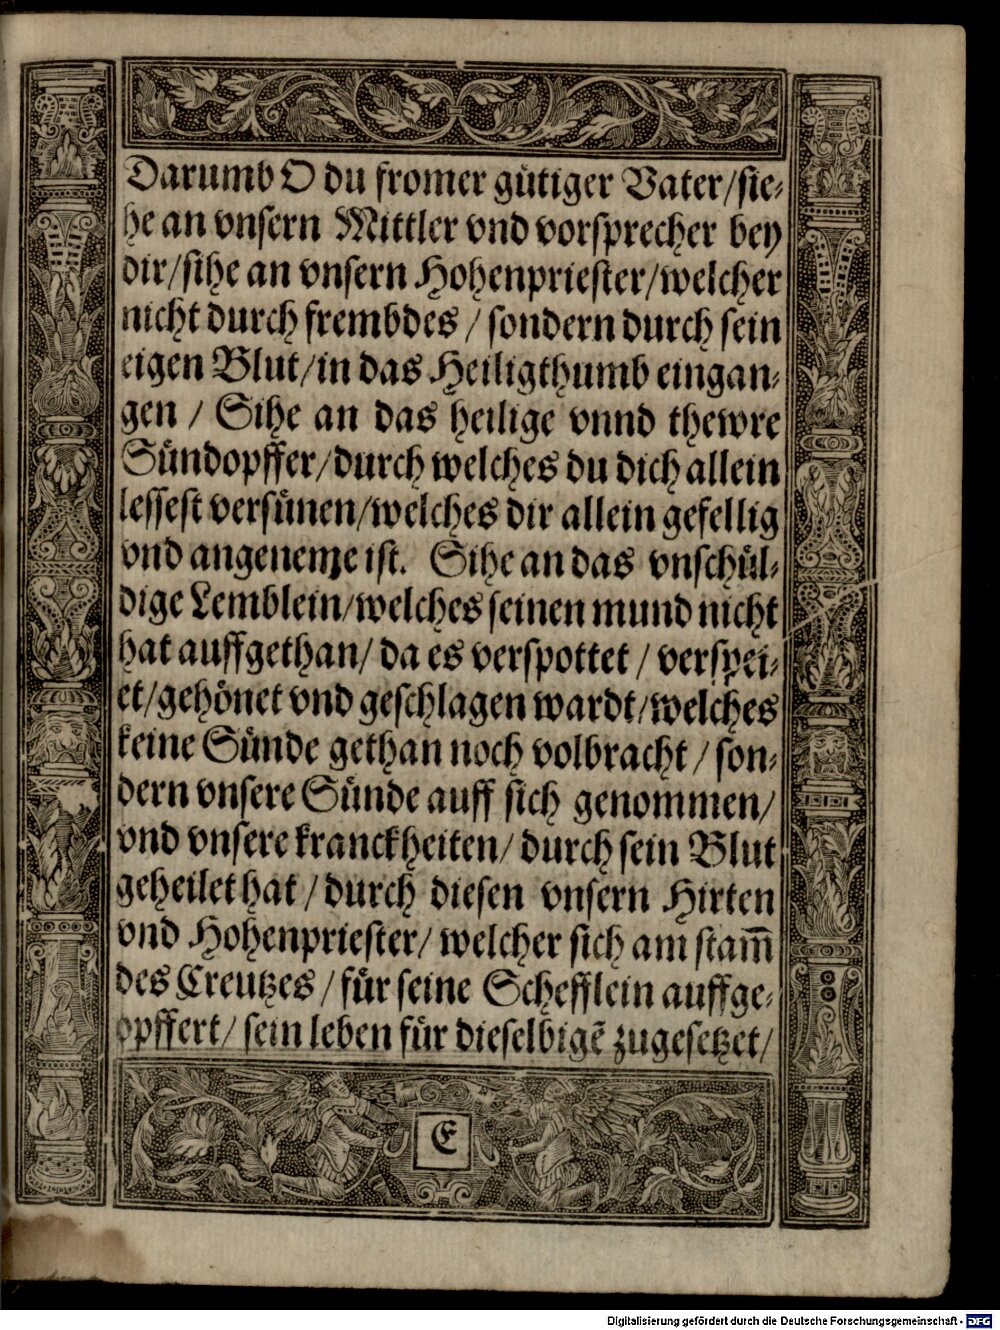 Darumb O du fromer gütiger Vater/sie-
he an vnsern Mittler vnd vorsprecher bey
dir/sihe an vnsern Hohenpriester/welcher
nicht durch frembdes / sondern durch sein
eigen Blut/in das Heiligthumb eingan-
gen / Sihe an das heilige vnnd thewre
Sündopffer/durch welches du dich allein
lessest versünen/welches dir allein gefellig
vnd angeneme ist. Sihe an das vnschül-
dige Lemblein/welches seinen mund nicht
hat auffgethan/ da es verspottet / verspei-
et/gehönet vnd geschlagen wardt/welches
keine Sünde gethan noch volbracht / son-
dern vnsere Sünde auff sich genommen/
vnd vnsere kranckheiten/ durch sein Blut
geheilet hat / durch diesen vnsern Hirten
vnd Hohenpriester/ welcher sich am stam̄
des Creutzes / für seine Schefflein auffge-
opffert/ sein leben für dieselbigẽ zugesetzet/
E
Digitalisierung gefördert durch die Deutsche Forschungsgemeinschaft - DFG